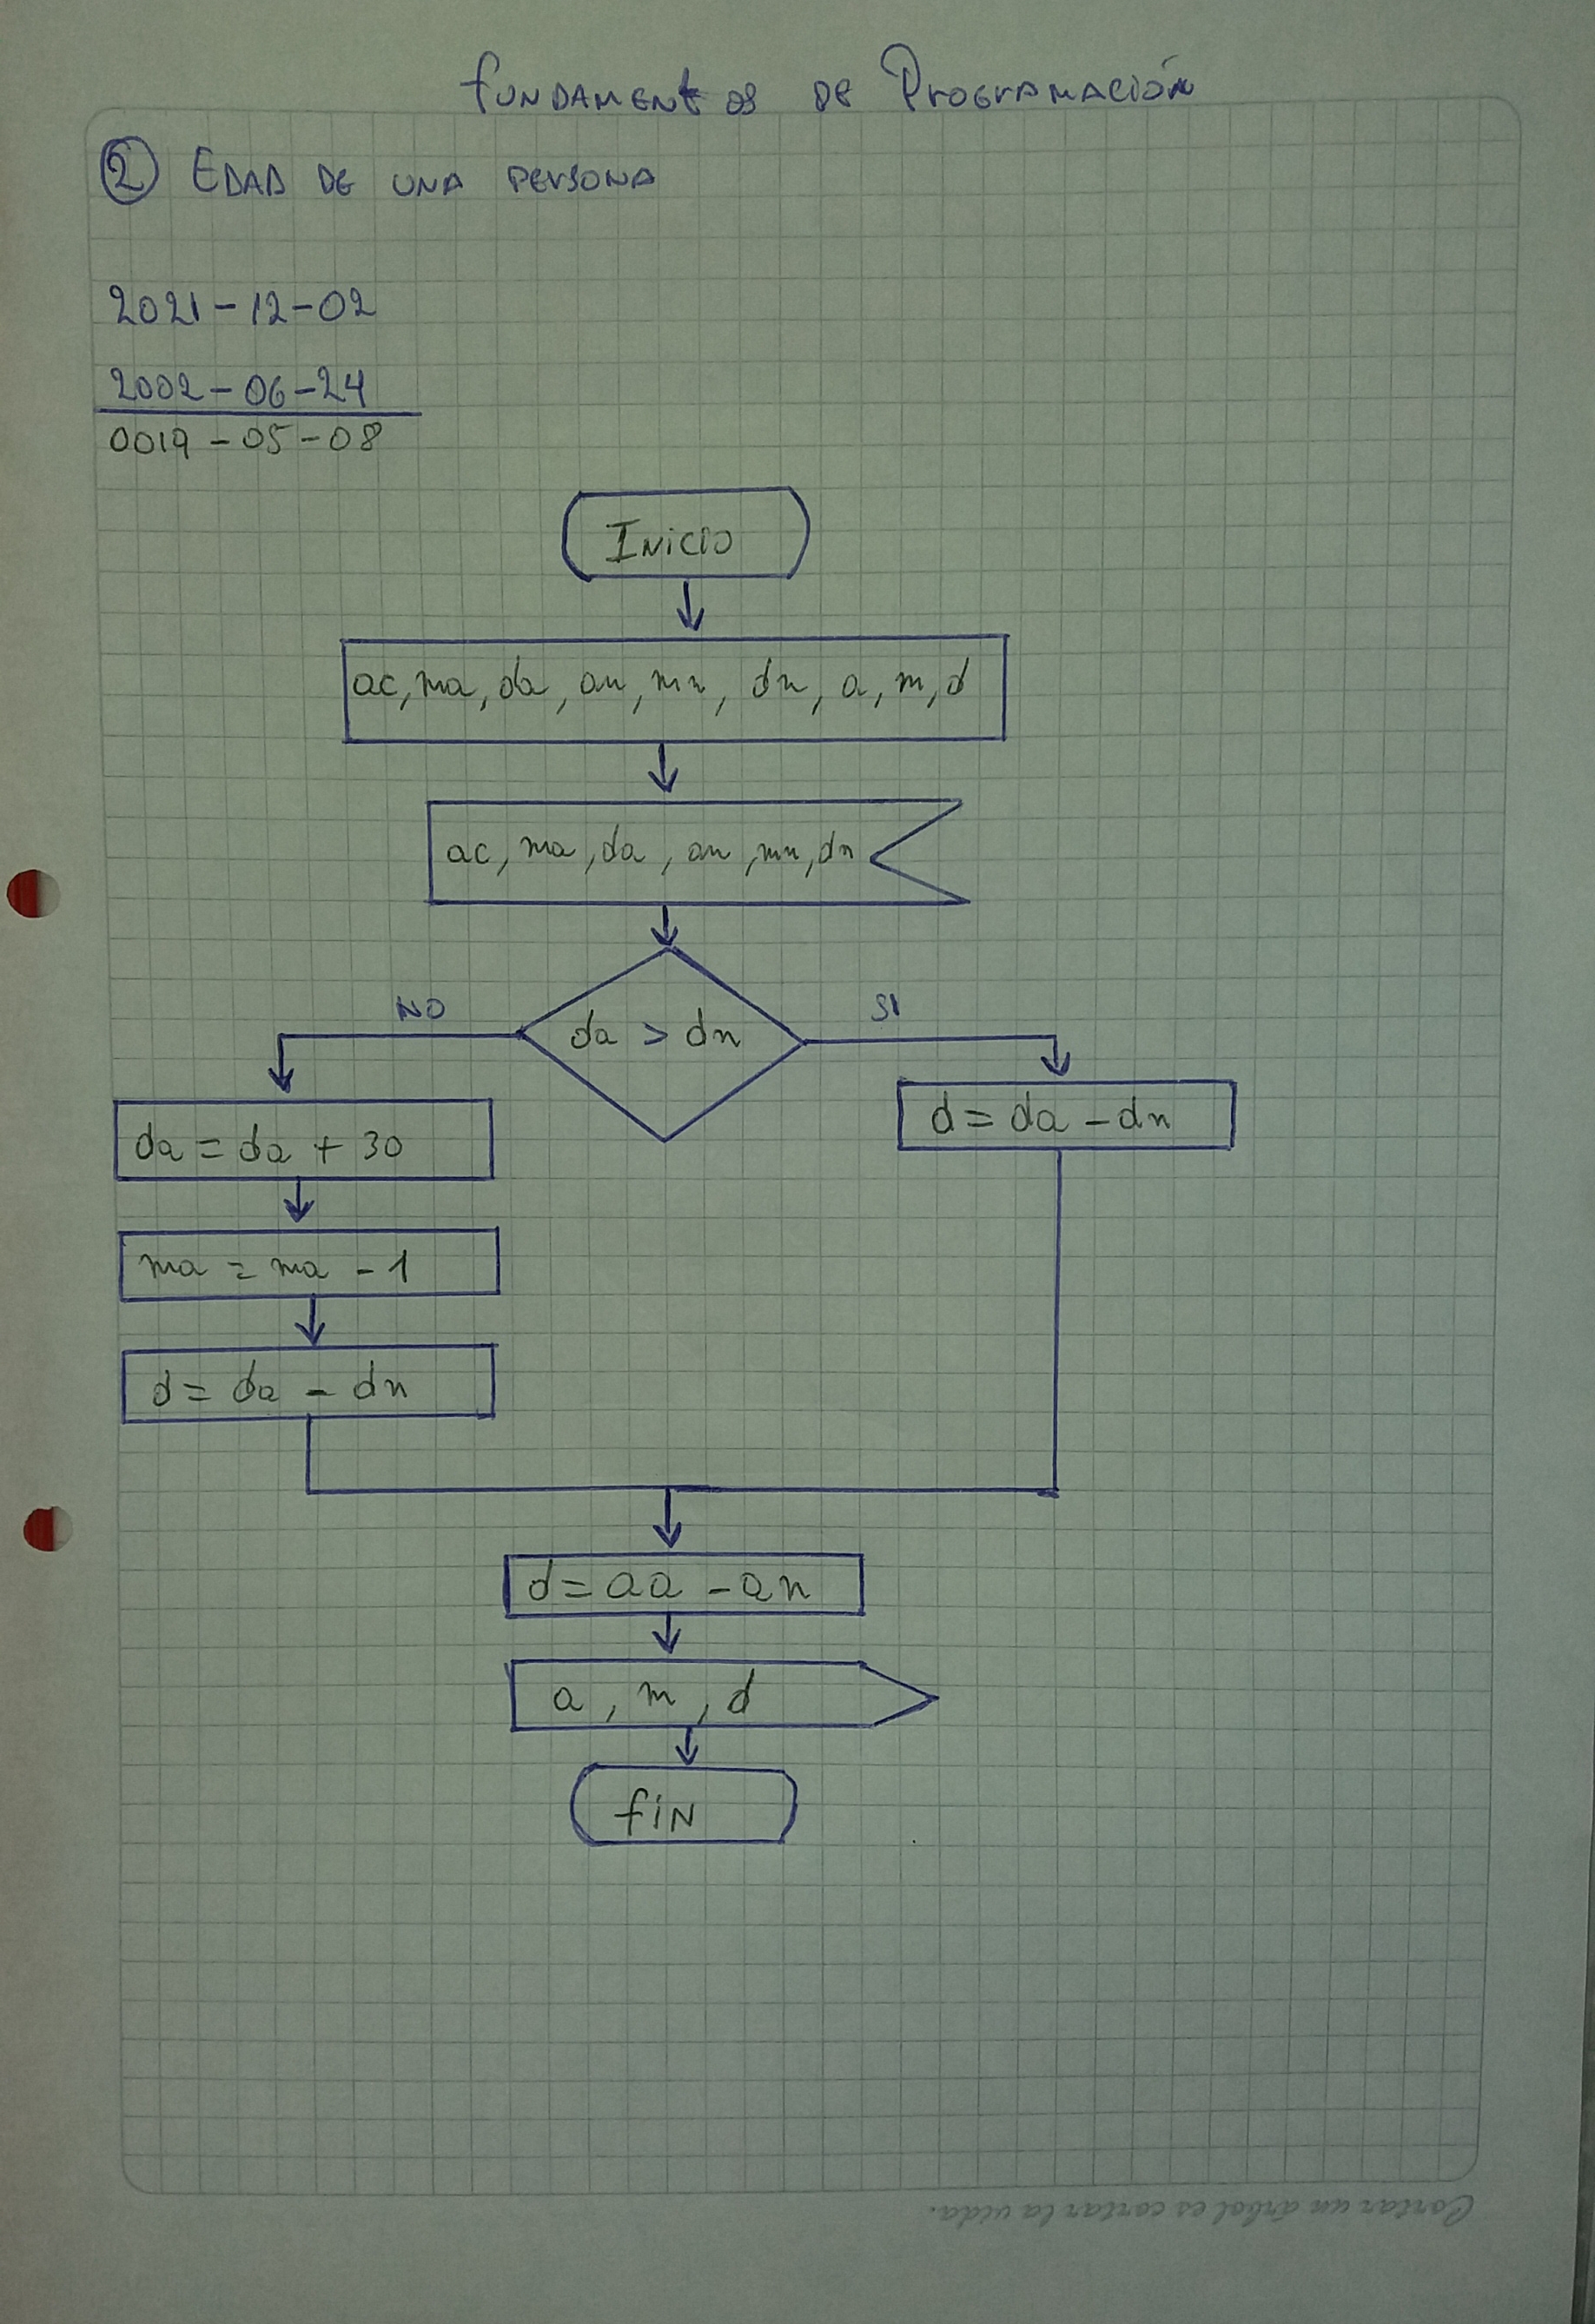 FUNDAMENTOS DE PROGRAMACIÓN
2 EDAD DE UNA PERSONA
2021-12-02
2002-06-24
0019-05-08
INICIO
ac, ma, da, an, mn, dn, a, m, d
ac, ma, da, an, mn, dn
NO
da > dn
SI
da = da + 30
d = da - dn
ma = ma - 1
d = da - dn
d = aa - an
a, m, d
FIN
Cortar un árbol es cortar la vida.